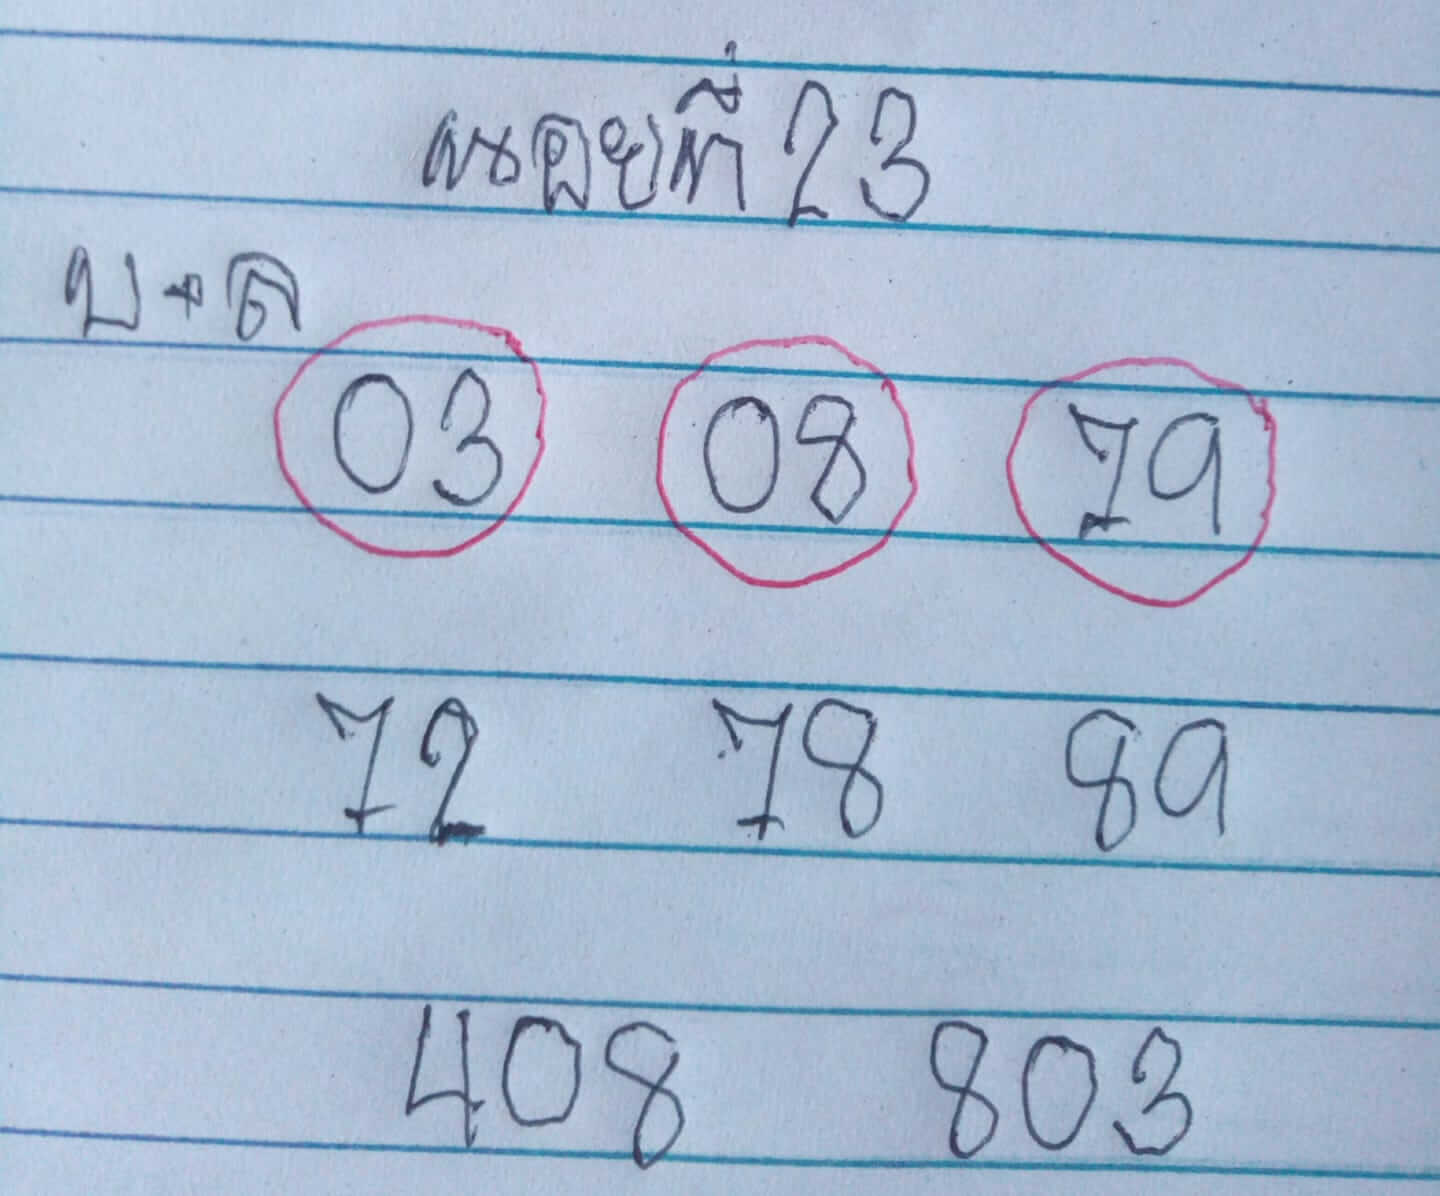 ที่ 23
บ+ล
03 08 79
72 78 89
408 803